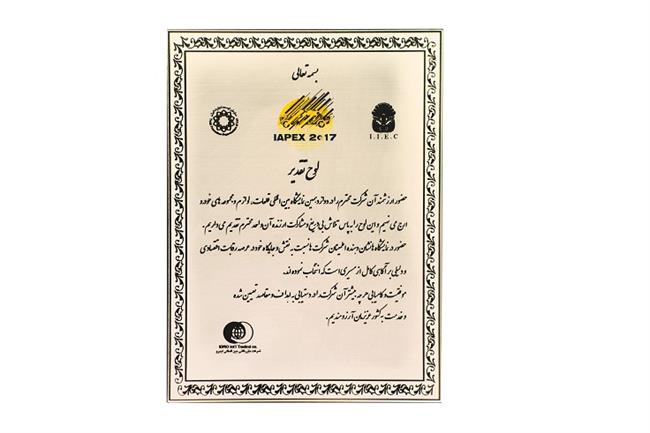 بسمه تعالی
IAPEX 2017
I.I.E.C
لوح تقدیر
حضور ارزشمند آن شرکت محترم را در دوازدهمین نمایشگاه بین المللی قطعات، لوازم و مجموعه های خودرو
ارج می نهیم و این لوح را به پاس تلاش بی دریغ و مشارکت ارزنده آن واحد محترم تقدیم می داریم.
حضور در نمایشگاه ها نشان دهنده اطمینان شرکت ها نسبت به نقش و جایگاه خود در عرصه رقابت اقتصادی
و دلیلی بر آگاهی کامل از مسیری است که انتخاب نموده اند.
موفقیت و کامیابی هر چه بیشتر آن شرکت را در دستیابی به اهداف و مقاصد تعیین شده
و خدمت به کشور عزیزمان آرزومندیم.
IDRO Int'l Trading co.